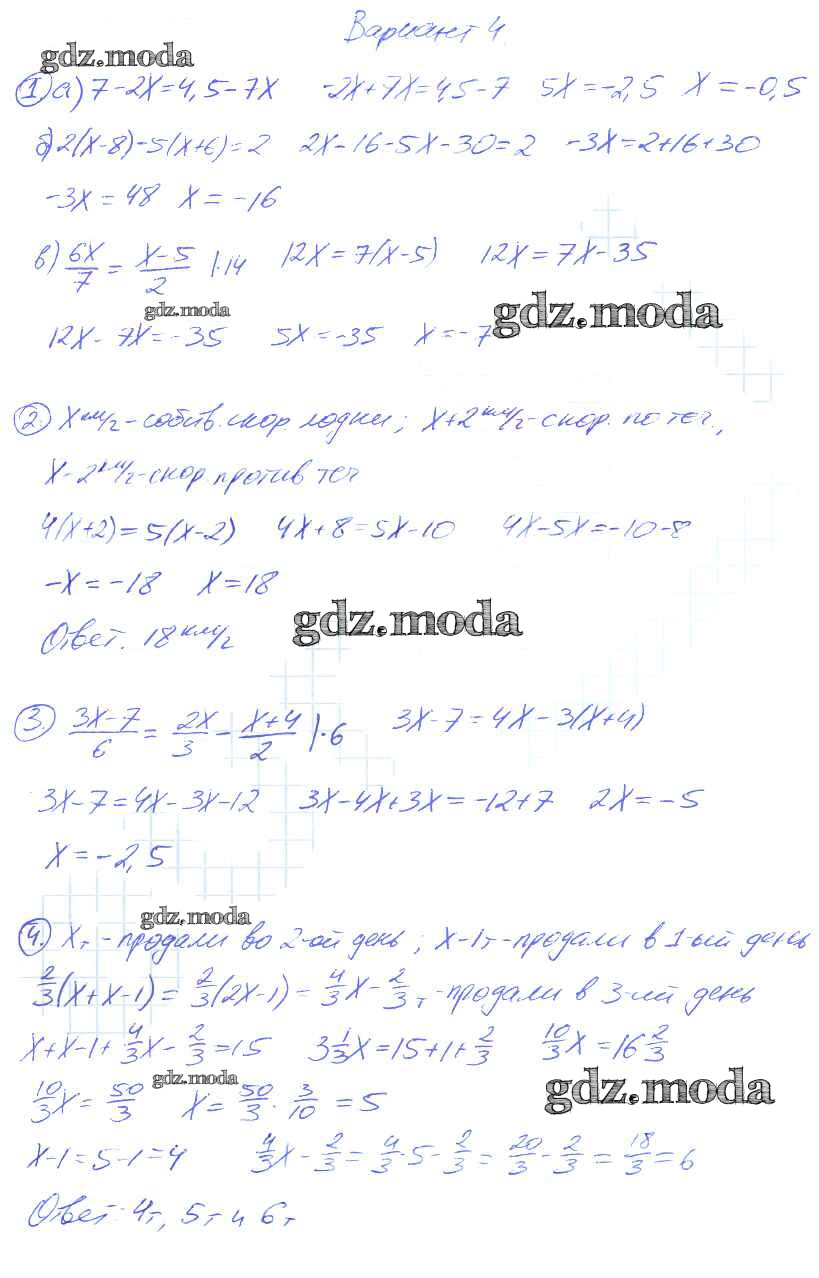 Вариант 4.
gdz.moda
1. а) 7-2x=4,5-7x -2x+7x=4,5-7 5x=-2,5 x=-0,5
б) 2(x-8)-5(x+6)=2 2x-16-5x-30=2 -3x=2+16+30
-3x=48 x=-16
в) 6x/7 = x-5/2 |·14 12x=7(x-5) 12x=7x-35
gdz.moda gdz.moda
12x-7x=-35 5x=-35 x=-7
2. x км/г-собств. скор лодки; x+2 км/г-скор. по теч.,
x-2 км/г-скор против теч
4(x+2)=5(x-2) 4x+8=5x-10 4x-5x=-10-8
-x=-18 x=18
gdz.moda
Ответ. 18 км/г
3. 3x-7/6 = 2x/3 - x+4/2 |·6 3x-7=4x-3(x+4)
3x-7=4x-3x-12 3x-4x+3x=-12+7 2x=-5
x=-2,5
gdz.moda
4. xт-продали во 2-ой день; x-1т-продали в 1-ый день
2/3(x+x-1)=2/3(2x-1)=4/3x-2/3т-продали в 3-ий день
x+x-1+4/3x-2/3=15 3 1/3x=15+1+2/3 10/3x=16 2/3
gdz.moda gdz.moda
10/3x=50/3 x=50/3·3/10=5
x-1=5-1=4 4/3x-2/3=4/3·5-2/3=20/3-2/3=18/3=6
Ответ: 4т, 5т и 6т